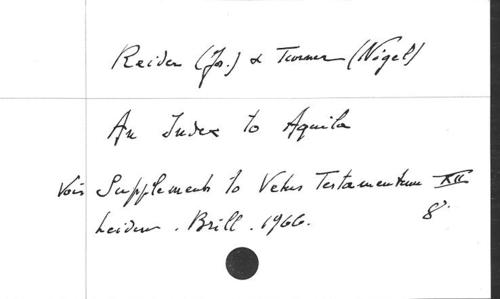 Reider (Jos.) & Turner (Nigel)
An Index to Aquila
Voir Supplements to Vetus Testamentum XII
Leiden . Brill . 1966. 8°